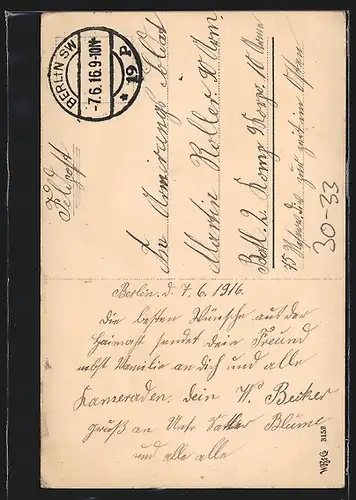 BERLIN SW
-7.6.16.9-10N
* 19 P
Feldpost
An Armirungs Soldat
Martin Roller 90 Arm
Batl. 2. Komp Korps. 10 Armee
75 Reserve Div zur zeit im Osten
30-33
Berlin. d. 7.6.1916.
Die besten Wünsche aus der
Heimaht sendet dein Freund
nebst Familie an dich und alle
Kameraden. Dein W. Becker
gruß an Unto Sattler Blume
und alle alle
W.B.G 3152